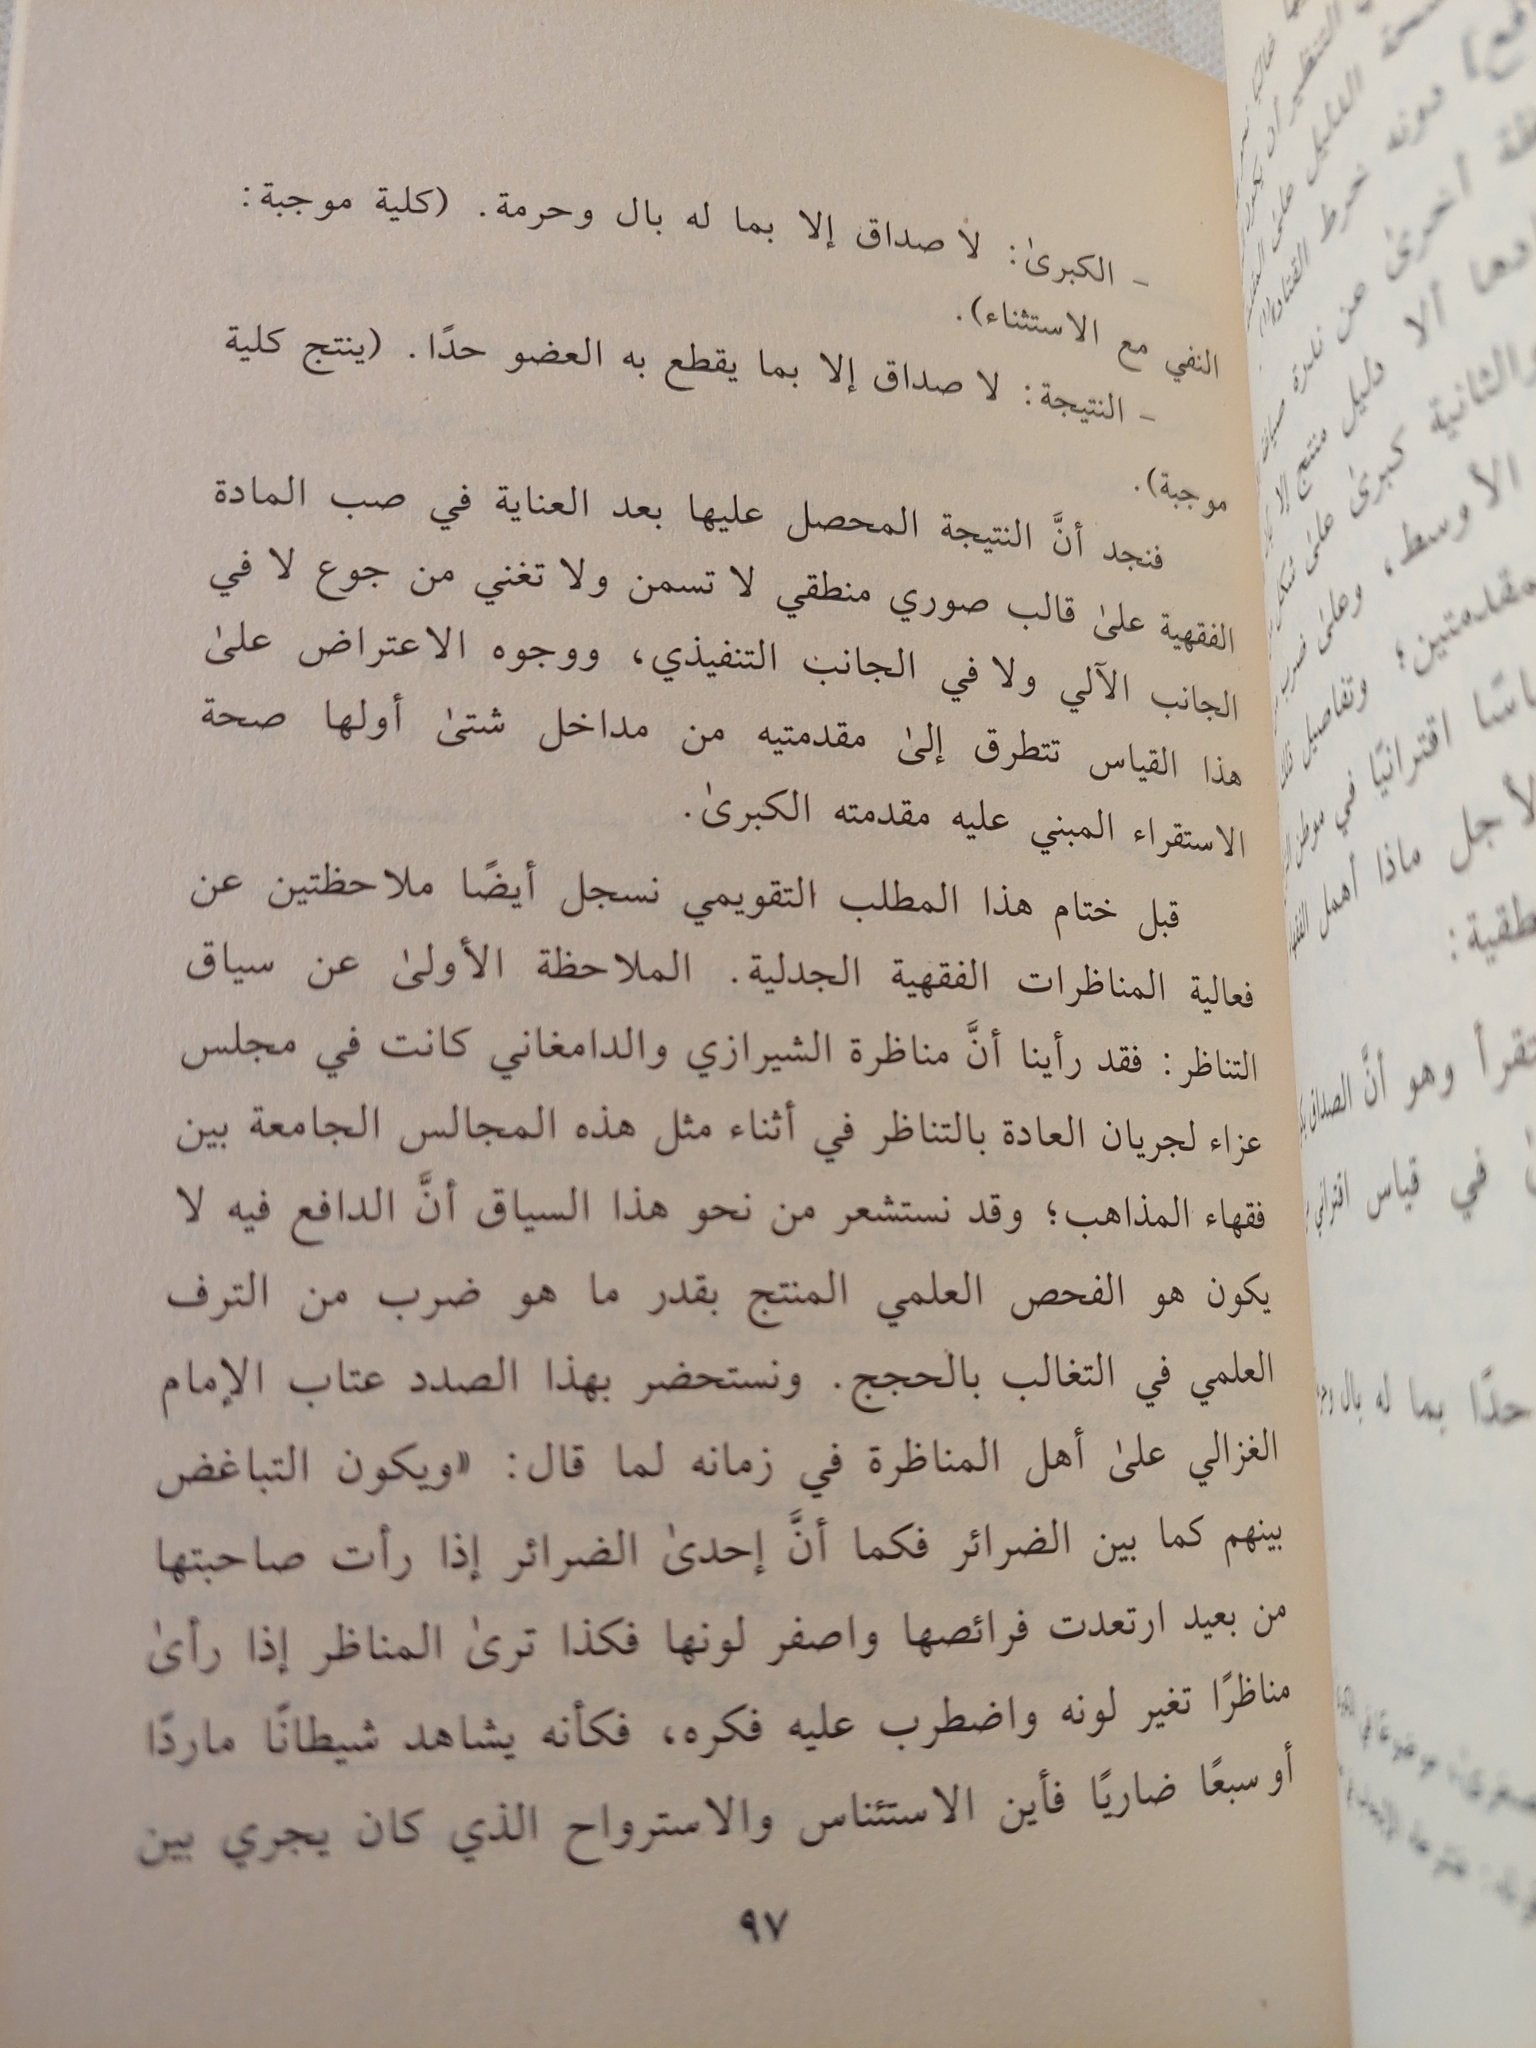 – الكبرىٰ: لا صداق إلا بما له بال وحرمة. (كلية موجبة:
النفي مع الاستثناء).
– النتيجة: لا صداق إلا بما يقطع به العضو حدًا. (ينتج كلية
موجبة).
فنجد أنَّ النتيجة المحصل عليها بعد العناية في صب المادة
الفقهية علىٰ قالب صوري منطقي لا تسمن ولا تغني من جوع لا في
الجانب الآلي ولا في الجانب التنفيذي، ووجوه الاعتراض علىٰ
هذا القياس تتطرق إلىٰ مقدمتيه من مداخل شتىٰ أولها صحة
الاستقراء المبني عليه مقدمته الكبرىٰ.
قبل ختام هذا المطلب التقويمي نسجل أيضًا ملاحظتين عن
فعالية المناظرات الفقهية الجدلية. الملاحظة الأولىٰ عن سياق
التناظر: فقد رأينا أنَّ مناظرة الشيرازي والدامغاني كانت في مجلس
عزاء لجريان العادة بالتناظر في أثناء مثل هذه المجالس الجامعة بين
فقهاء المذاهب؛ وقد نستشعر من نحو هذا السياق أنَّ الدافع فيه لا
يكون هو الفحص العلمي المنتج بقدر ما هو ضرب من الترف
العلمي في التغالب بالحجج. ونستحضر بهذا الصدد عتاب الإمام
الغزالي علىٰ أهل المناظرة في زمانه لما قال: «ويكون التباغض
بينهم كما بين الضرائر فكما أنَّ إحدىٰ الضرائر إذا رأت صاحبتها
من بعيد ارتعدت فرائصها واصفر لونها فكذا ترىٰ المناظر إذا رأىٰ
مناظرًا تغير لونه واضطرب عليه فكره، فكأنه يشاهد شيطانًا ماردًا
أو سبعًا ضاريًا فأين الاستئناس والاسترواح الذي كان يجري بين
٩٧
أخرىٰ عن ندرة
ألا دليل منتج إلا
والثانية كبرىٰ علىٰ
الأوسط، وعلىٰ ضرب
مقدمتين؛ وتفاصيل
اقترانيًا في موطن
لأجل ماذا أهمل
وهو أنَّ الصداق
في قياس اقتراني
حدًا بما له بال